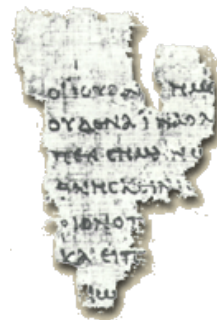 ΟΙ ΙΟΥΔΑΙ ΗΜΕ
ΟΥΔΕΝΑ ΙΝΑ Ο Λ
ΠΕΝ CΗΜΑΙΝ
ΘΝΗCΚΕΙΝ
ΡΙΟΝ Ο Π
ΚΑΙ ΕΙΠ
ΙΩ